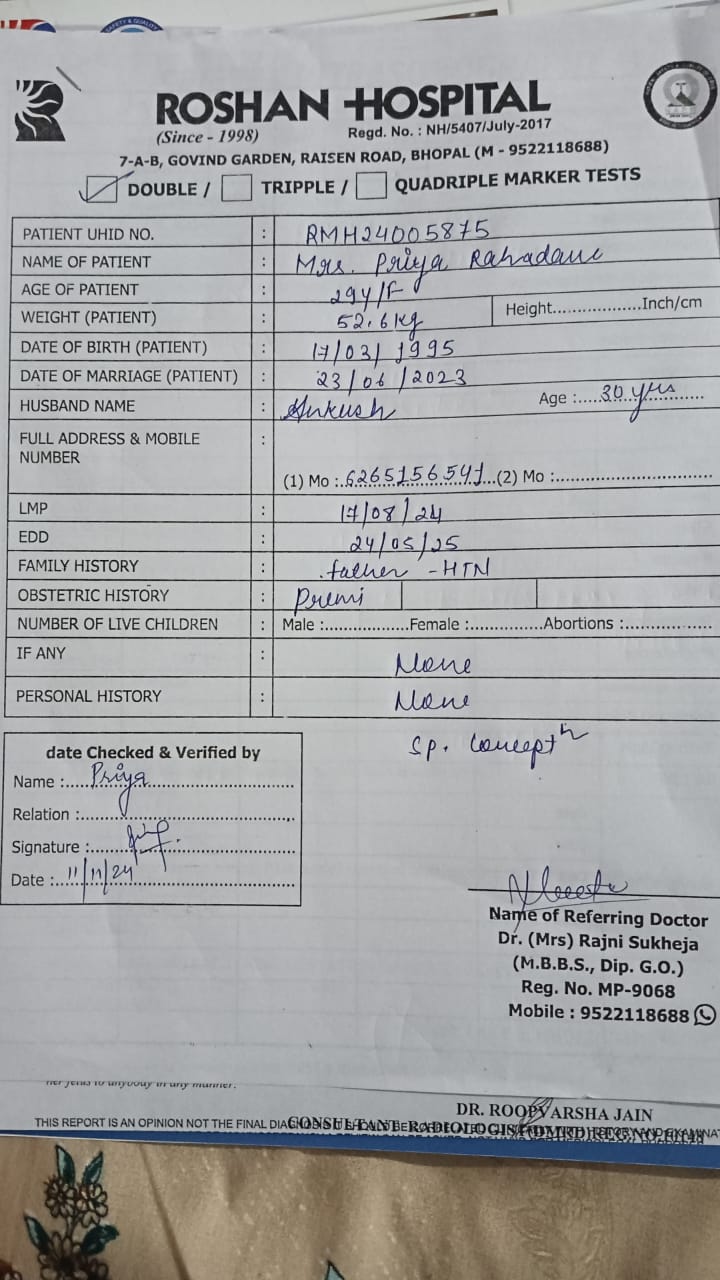 SAFETY & QUALITY
ROSHAN HOSPITAL
(Since - 1998) Regd. No. : NH/5407/July-2017
7-A-B, GOVIND GARDEN, RAISEN ROAD, BHOPAL (M - 9522118688)
DOUBLE / TRIPPLE / QUADRIPLE MARKER TESTS
PATIENT UHID NO. : RMH24005875
NAME OF PATIENT : Mrs. Priya Rahadane
AGE OF PATIENT : 29Y/F
WEIGHT (PATIENT) : 52.6 kg Height..................Inch/cm
DATE OF BIRTH (PATIENT) : 17/03/1995
DATE OF MARRIAGE (PATIENT) : 23/06/2023
HUSBAND NAME : Ankush Age :.....30 yrs
FULL ADDRESS & MOBILE :
NUMBER
(1) Mo :.6265156541...(2) Mo :................................
LMP : 17/08/24
EDD : 24/05/25
FAMILY HISTORY : father - HTN
OBSTETRIC HISTORY : Premi
NUMBER OF LIVE CHILDREN : Male :..................Female :...............Abortions :..................
IF ANY : None
PERSONAL HISTORY : None
Sp. Concept^n
date Checked & Verified by
Name :.....Priya
Relation :............................................
Signature :......
Date :..11/11/24
Name of Referring Doctor
Dr. (Mrs) Rajni Sukheja
(M.B.B.S., Dip. G.O.)
Reg. No. MP-9068
Mobile : 9522118688
her fetus to anybody in any manner.
DR. ROOPVARSHA JAIN
CONSULTANT RADIOLOGIST(DMRD)
THIS REPORT IS AN OPINION NOT THE FINAL